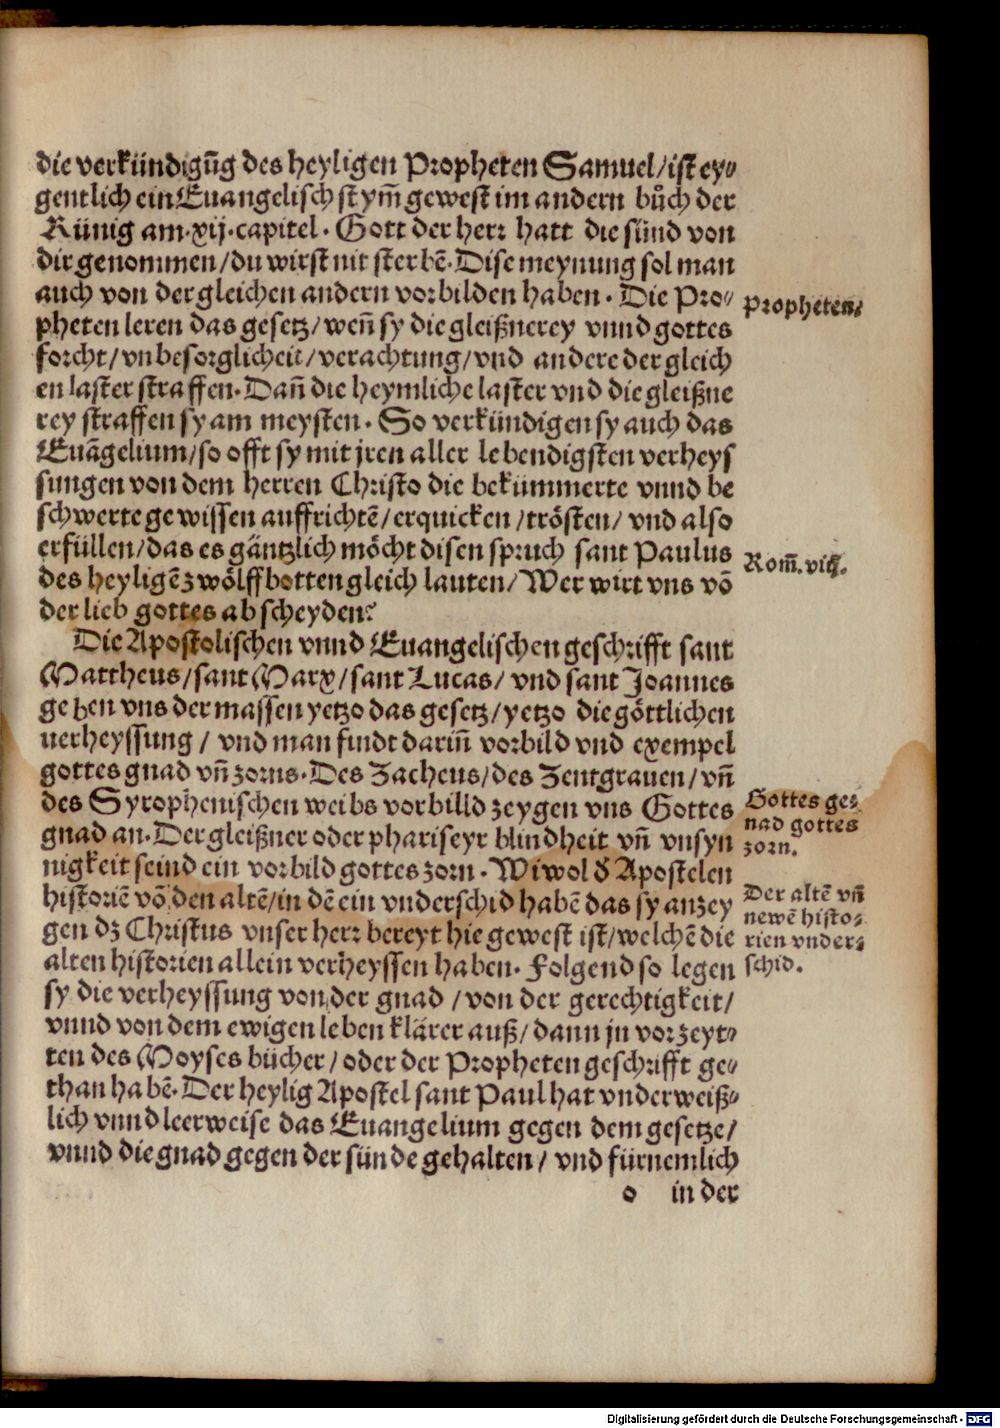 die verkündigūg des heyligen Propheten Samuel/ist ey⸗
gentlich ein Euangelisch stym̄ gewest im andern bůch der
Künig am.xij.capitel. Gott der herr hatt die sünd von
dir genommen/du wirst nit sterbē. Dise meynung sol man
auch von der gleichen andern vorbilden haben. Die Pro⸗
pheten leren das gesetz/wen̄ sy die gleißnerey vnnd gottes
forcht/vnbesorglicheit/verachtung/vnd andere der gleich
en laster straffen. Dan̄ die heymliche laster vnd die gleißne
rey straffen sy am meysten. So verkündigen sy auch das
Euāgelium/so offt sy mit jren aller lebendigsten verheys
sungen von dem herren Christo die bekümmerte vnnd be
schwerte gewissen auffrichtē/erquicken/trösten/vnd also
erfüllen/das es gäntzlich möcht disen spruch sant Paulus
des heyligē zwölffbotten gleich lauten/Wer wirt vns vō
der lieb gottes abscheyden?
Die Apostolischen vnnd Euangelischen geschrifft sant
Mattheus/sant Marx/sant Lucas/vnd sant Joannes
geben vns der massen yetzo das gesetz/yetzo die göttlichen
uerheyssung/vnd man findt darin̄ vorbild vnd exempel
gottes gnad vn̄ zorns. Des Zacheus/des Zentgrauen/vn̄
des Syrophenischen weibs vorbilld zeygen vns Gottes
gnad an. Der gleißner oder phariseyr blindheit vn̄ vnsyn
nigkeit seind ein vorbild gottes zorn. Wiwol d̕ Apostelen
historiē vō den altē/in dē ein vnderschid habē das sy anzey
gen dz Christus vnser herr bereyt hie gewest ist/welchē die
alten historien allein verheyssen haben. Folgend so legen
sy die verheyssung von der gnad/von der gerechtigkeit/
vnnd von dem ewigen leben klärer auß/dann jn vorzeyt⸗
ten des Moyses bücher/oder der Propheten geschrifft ge⸗
than habē. Der heylig Apostel sant Paul hat vnderweiß⸗
lich vnnd leerweise das Euangelium gegen dem gesetze/
vnnd die gnad gegen der sünde gehalten/vnd fürnemlich
o in der
Propheten/
Rom̄.viij.
Gottes ge⸗
nad gottes
zorn.
Der altē vn̄
newē histo⸗
rien vnder⸗
schid.
Digitalisierung gefördert durch die Deutsche Forschungsgemeinschaft - DFG